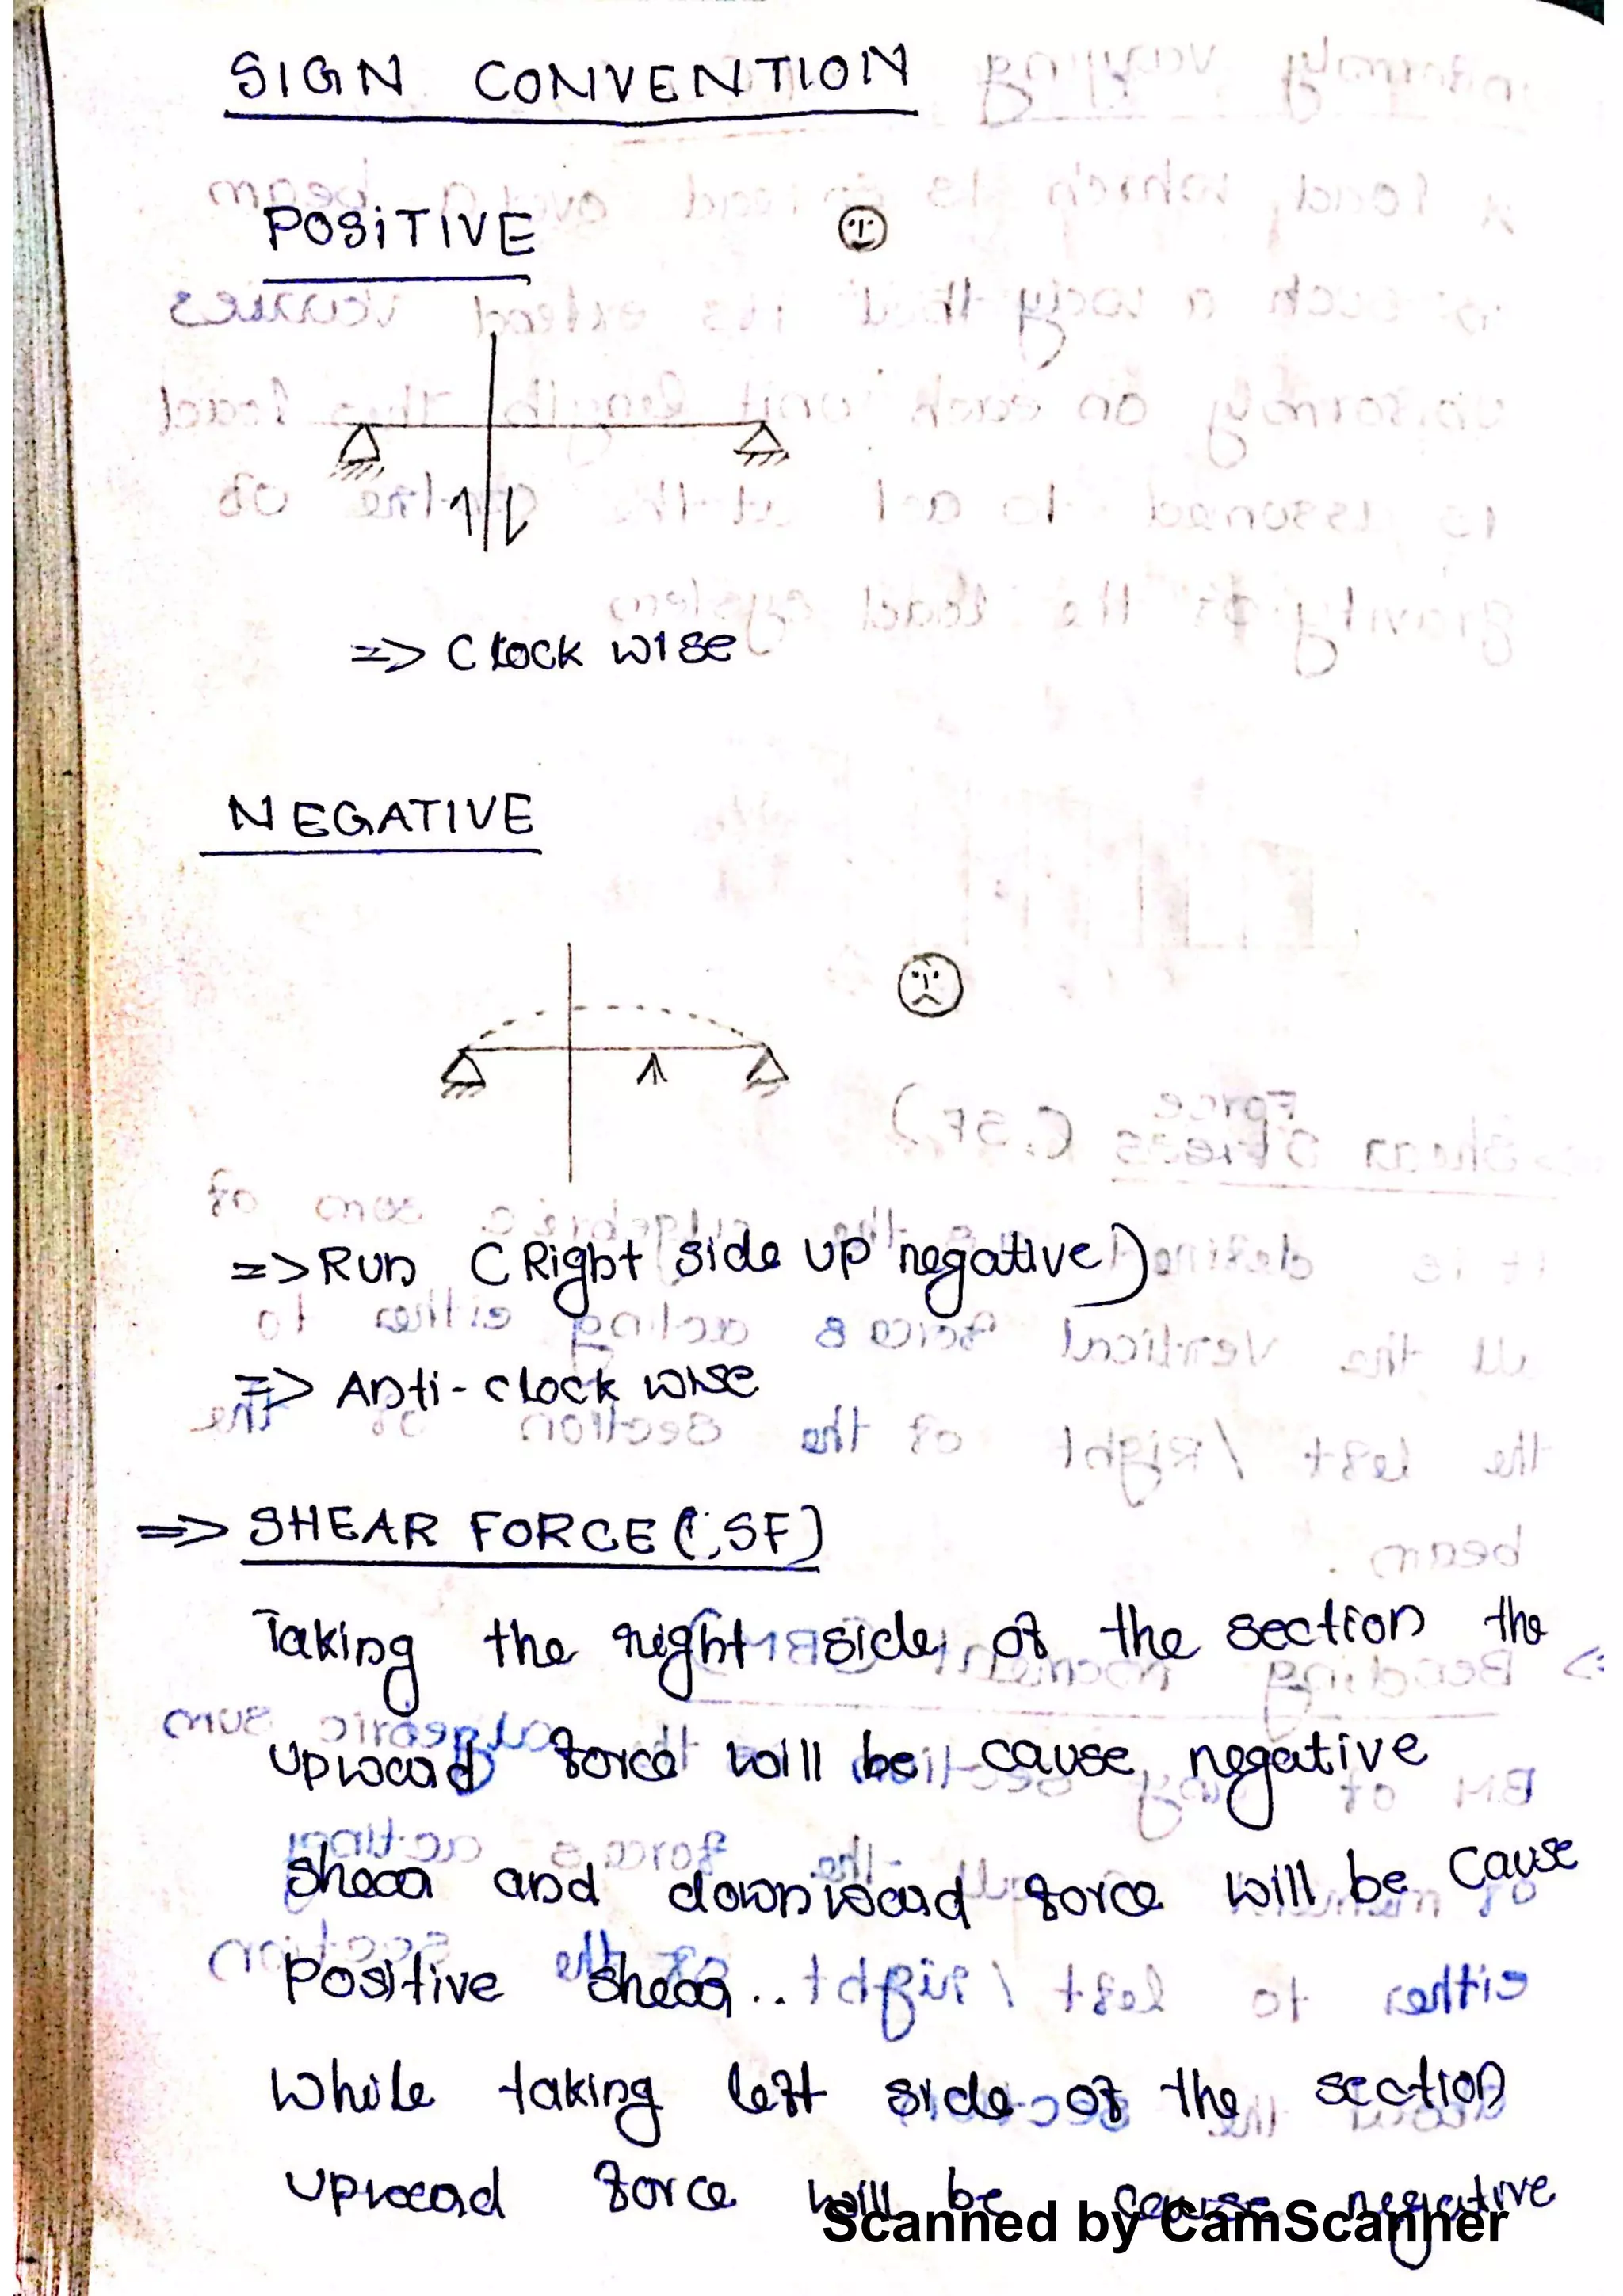 SIGN CONVENTION
POSITIVE
=> Clock wise
NEGATIVE
=> Run (Right side up negative)
=> Anti-clock wise
=> SHEAR FORCE (SF)
Taking the right side of the section the
upward force will be cause negative
shear and downward force will be cause
positive shear..
While taking left side of the section
upward force will be cause negative
Scanned by CamScanner